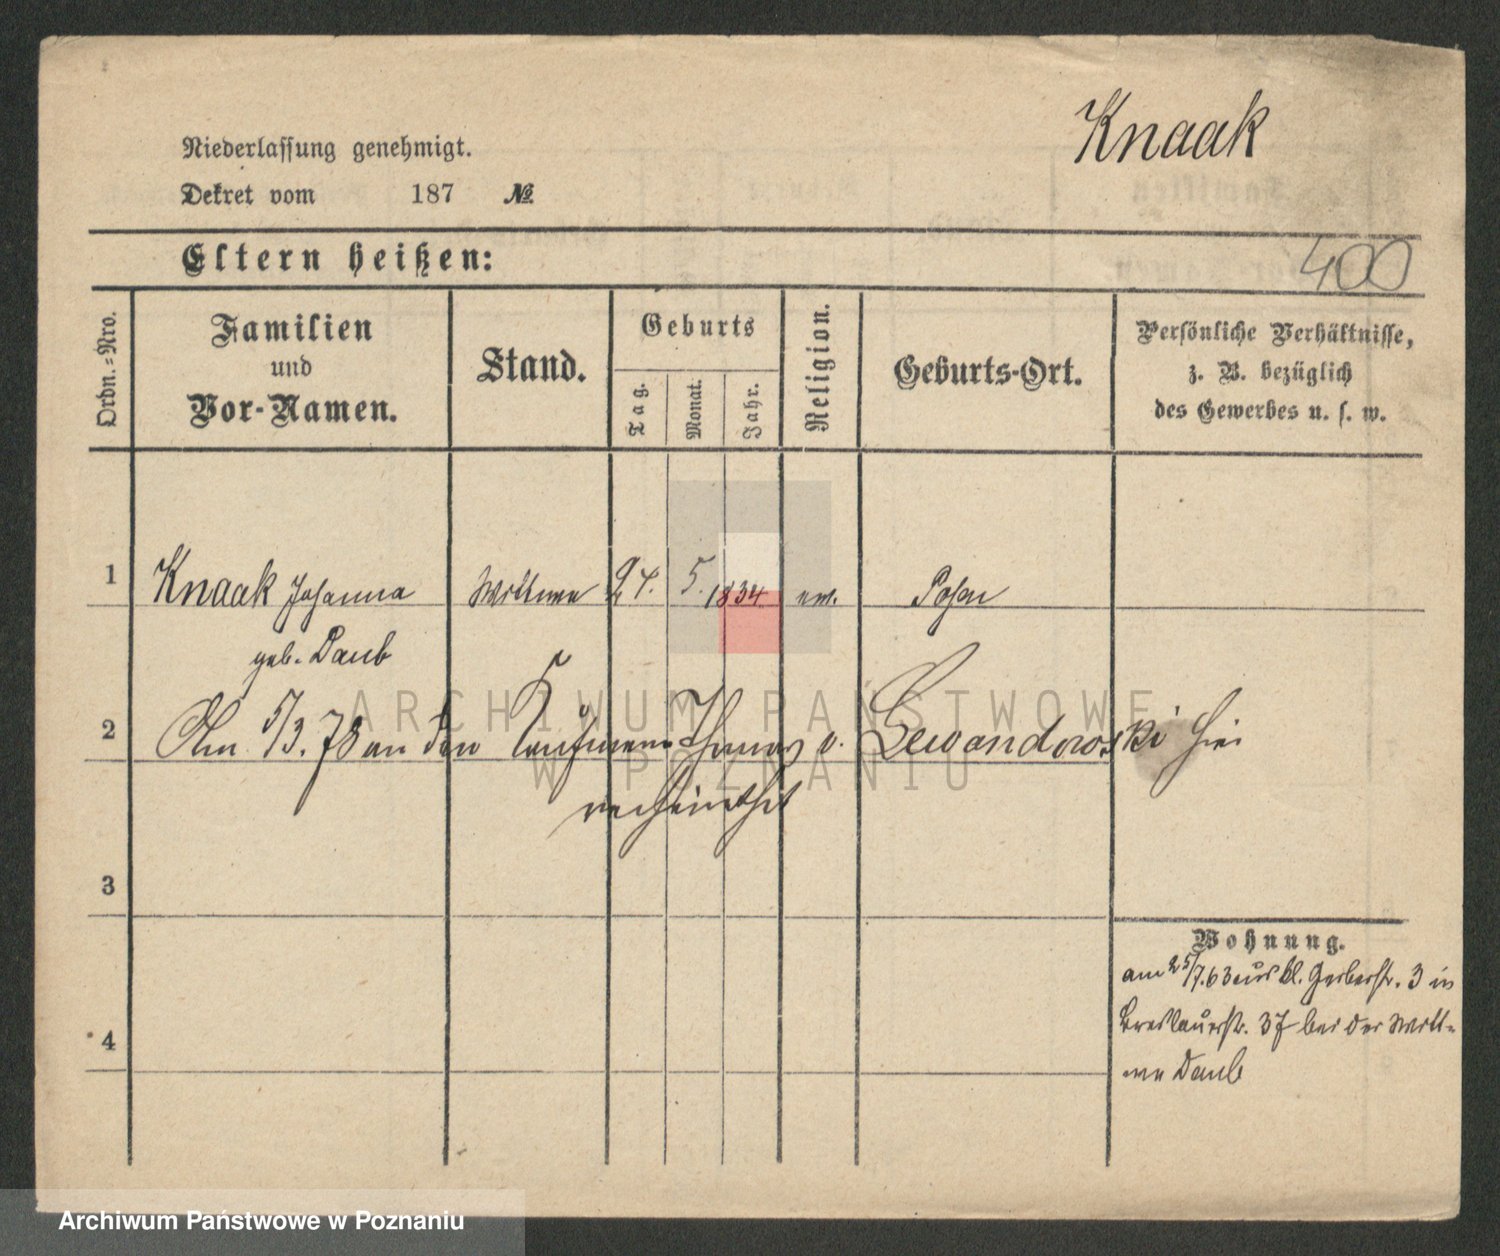 Knaak
Niederlassung genehmigt.
Dekret vom 187 №
Eltern heißen:
400
Ordn.=Nro.
Familien
und
Vor-Namen.
Stand.
Geburts
Tag.
Monat.
Jahr.
Religion.
Geburts-Ort.
Persönliche Verhältnisse,
z. B. bezüglich
des Gewerbes u. s. w.
1 Knaak Johanna Wittwe 24. 5. 1834 ev. Posen
geb. Daub
2 Am 5/3. 78 an den Kaufmann Thomas v. Lewandowski hier
verheirathet
3
4
Wohnung.
am 25/7.63 aus kl. Gerberstr. 3 in
Breslauerstr. 37 bei der Witt-
we Daub
ARCHIWUM PAŃSTWOWE
W POZNANIU
Archiwum Państwowe w Poznaniu